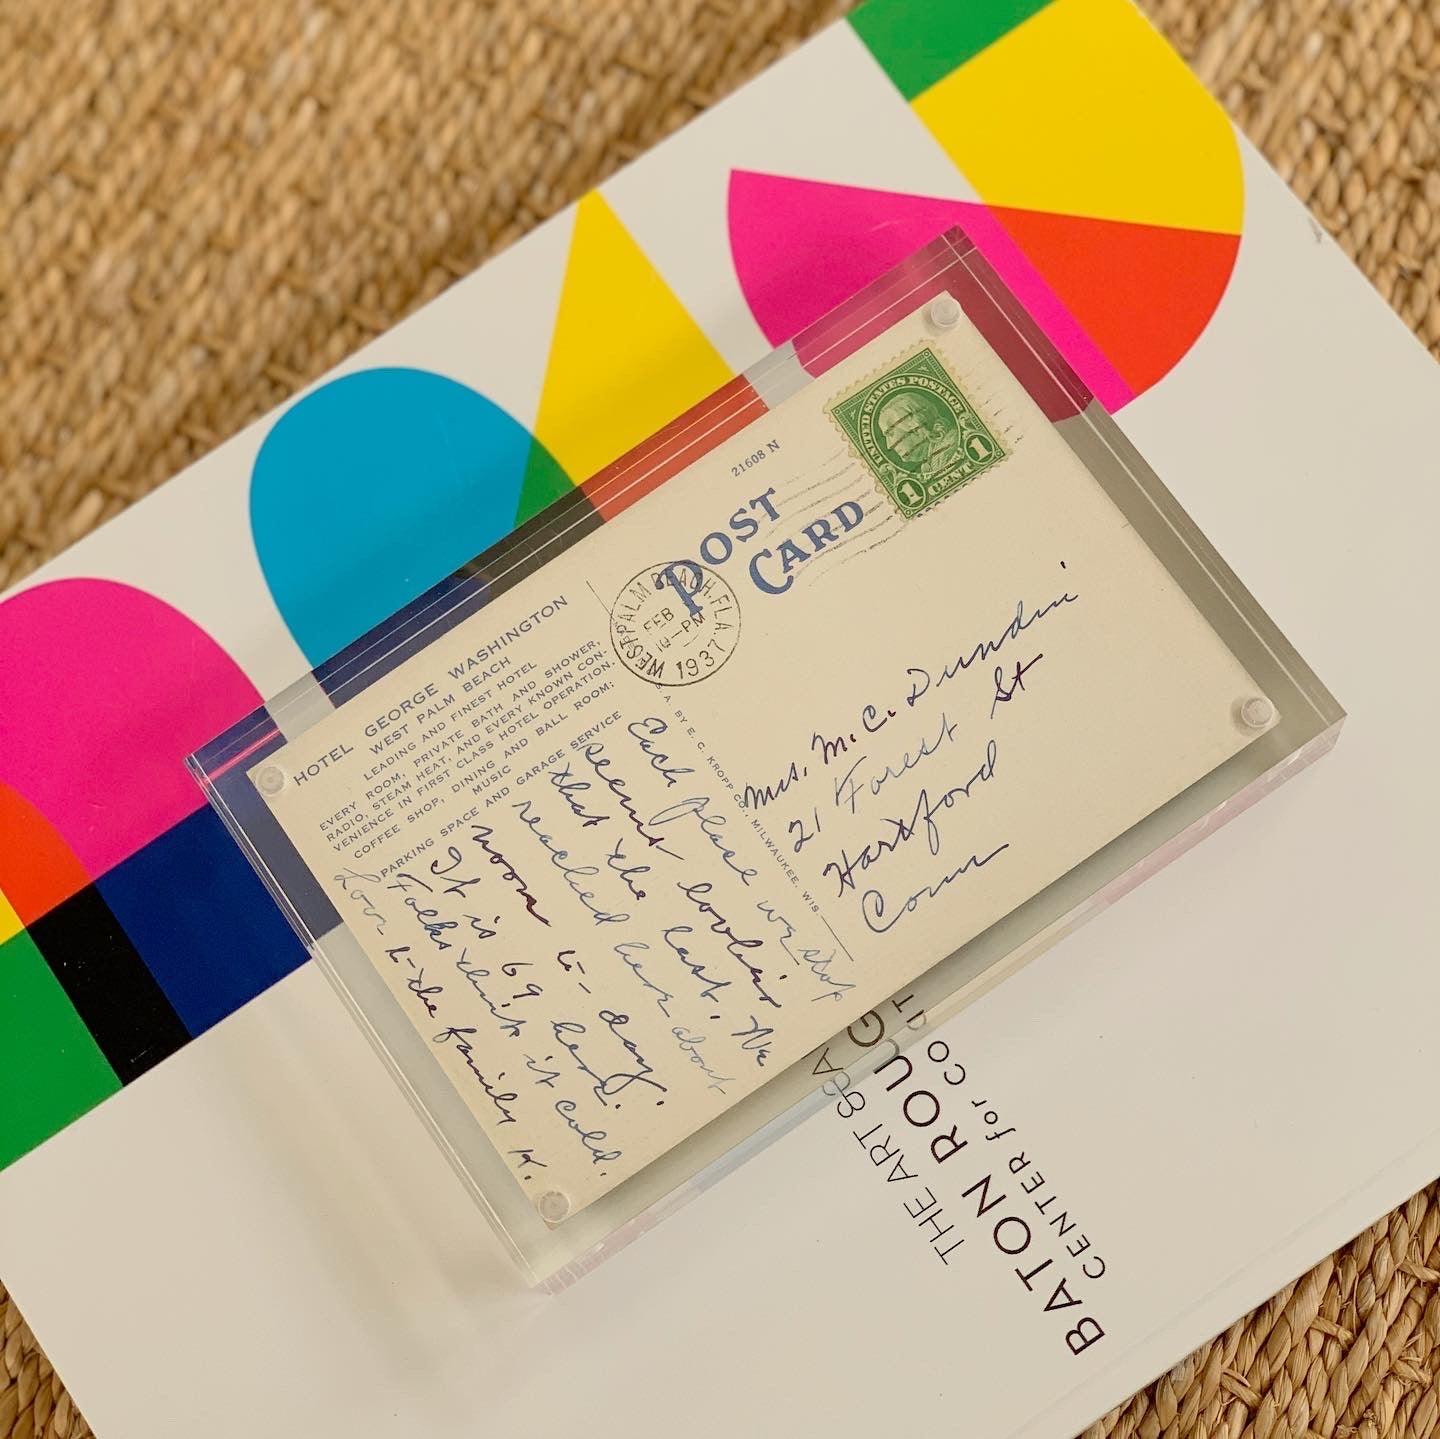 UNITED STATES POSTAGE
1 CENT 1
21608 N
POST
CARD
WEST PALM BEACH, FLA.
FEB
PM
1937
HOTEL GEORGE WASHINGTON
WEST PALM BEACH
LEADING AND FINEST HOTEL
EVERY ROOM, PRIVATE BATH AND SHOWER,
RADIO, STEAM HEAT, AND EVERY KNOWN CON-
VENIENCE IN FIRST CLASS HOTEL OPERATION.
COFFEE SHOP, DINING AND BALL ROOM:
MUSIC
PARKING SPACE AND GARAGE SERVICE
Each place we stop
seems lovlier
that the last. We
reached here about
noon to-day.
It is 69 here.
Folks think it cold.
Love to the family K.
S. A. BY E. C. KROPP CO., MILWAUKEE, WIS.
Mrs. M. C. Dundin
21 Forest St
Hartford
Conn
THE ART
BATON ROUG
CENTER for CO